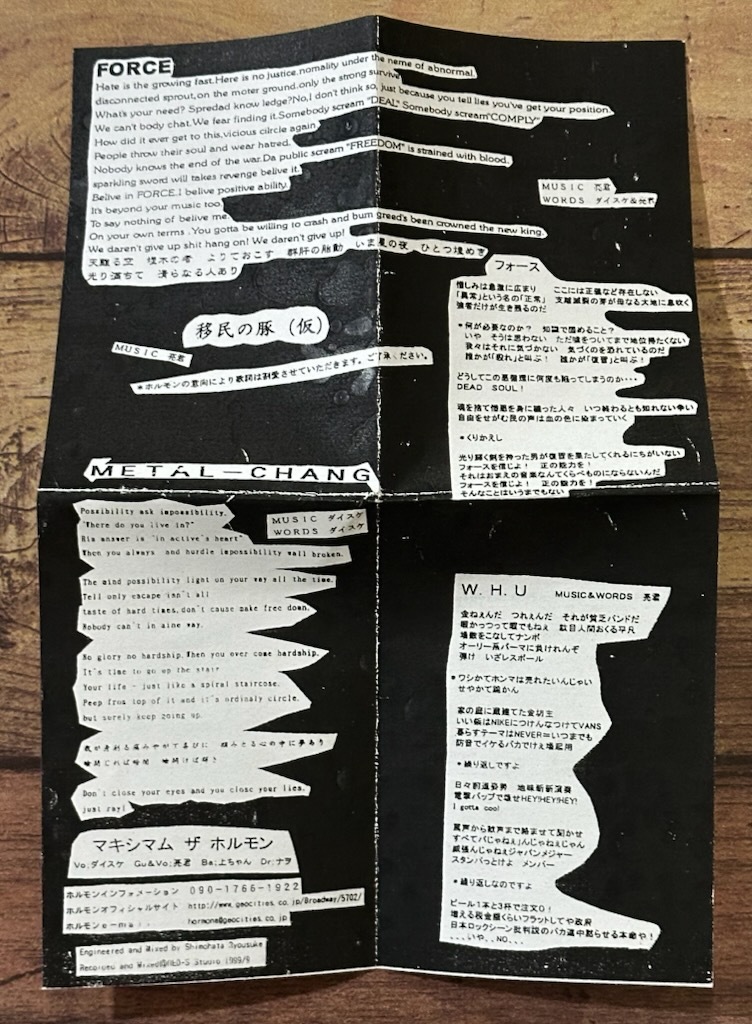 FORCE
Hate is the growing fast.Here is no justice.nomality under the neme of abnormal.
disconnected sprout,on the moter ground.only the strong survive
What's your need? Spredad know ledge?No,I don't think so, just because you tell lies you've get your position.
We can't body chat.We fear finding it.Somebody scream "DEAL" Somebody scream"COMPLY"
How did it ever get to this,vicious circle again
People throw their soul and wear hatred.
Nobody knows the end of the war.Da public scream "FREEDOM" is strained with blood.
sparkling sword will takes revenge belive it.
Belive in FORCE.I belive positive ability.
It's beyond your music too.
To say nothing of belive me.
On your own terms .You gotta be willing to crash and burn greed's been crowned the new king.
We daren't give up shit hang on! We daren't give up!
天駆る空 埋木の者 よりておこす 群肝の胎動 いま星の夜 ひとつ煌めき
光り満ちて 清らなる人あり
MUSIC 亮君
WORDS ダイスケ&亮君
フォース
憎しみは急激に広まり ここには正義など存在しない
「異常」という名の「正常」 支離滅裂の芽が母なる大地に息吹く
強者だけが生き残るのだ
*何が必要なのか? 知識で固めること?
いや そうは思わない ただ嘘をついてまで地位得たくない
我々はそれに気づかない 気づくのを恐れているのだ
誰かが「殺れ」と叫ぶ! 誰かが「復習」と叫ぶ!
どうしてこの悪循環に何度も陥ってしまうのか・・・
DEAD SOUL!
魂を捨て憎悪を身に纏った人々 いつ終わるとも知れない争い
自由をせがむ民の声は血の色に染まっていく
*くりかえし
光り輝く剣を持った男が復習を果たしてくれるにちがいない
フォースを信じよ! 正の能力を!
それはおまえの音楽なんてくらべものにならないんだ
フォースを信じよ! 正の能力を!
そんなことはいうまでもない
移民の豚(仮)
MUSIC 亮君
*ホルモンの意向により歌詞は割愛させていただきます。ご了承ください。
METAL-CHANG
MUSIC ダイスケ
WORDS ダイスケ
Possibility ask impossibility.
"Where do you live in?"
His answer is "in active's heart"
When you always and hurdle impossibility wall broken.
The mind possibility light on your way all the time.
Tell only escape isn't all
taste of hard times,don't cause make free down.
Nobody can't in aine way.
No glory no hardship.When you over come hardship.
It's time to go up the stair
Your life - just like a spiral staircase.
Peep from top of it and it's ordinaly circle.
but surely keep going up.
Don't close your eyes and you close your lies.
just ray!
マキシマム ザ ホルモン
Vo:ダイスケ Gu&Vo:亮君 Ba:上ちゃん Dr:ナヲ
ホルモンインフォメーション 090-1766-1922
ホルモンオフィシャルサイト http://www.geocities.co.jp/Broadway/5702/
ホルモンe-mail hormone@geocities.co.jp
Engineered and Mixed by Shimohata Ryousuke
Recorded and Mixed@RED-S Studio 1999/9
W.H.U MUSIC&WORDS 亮君
金ねぇんだ つれぇんだ それが貧乏バンドだ
暇かっつって暇でもねぇ 駄目人間おくる平凡
場数をこなしてナンボ
オーリー系パーマに負けれんぞ
弾け いざレスポール
*ワシかてホンマは売れたいんじゃい
せやかて媚かん
家の庭に蔵建てた金坊主
いい飯はNIKEにつけんなつけてVANS
暮らすテーマはNEVER=いつまでも
防音でイケるバカでけぇ場起用
*繰り返しですよ
日々前進姿勢 地味斬新演奏
電撃バップで魅せHEY!HEY!HEY!
I gotta cool
罵声から歓声まで絡ませて聞かせ
すべてバじゃねぇんじゃねぇじゃん
威張んじゃねぇジャパンメジャー
スタンバっとけよ メンバー
*繰り返しなのですよ
ビール1本と3杯で注文0!
増える税金極くらいフラットしてや政府
日本ロックシーン批判説のバカ連中黙らせる本命や!
...いや..NO...